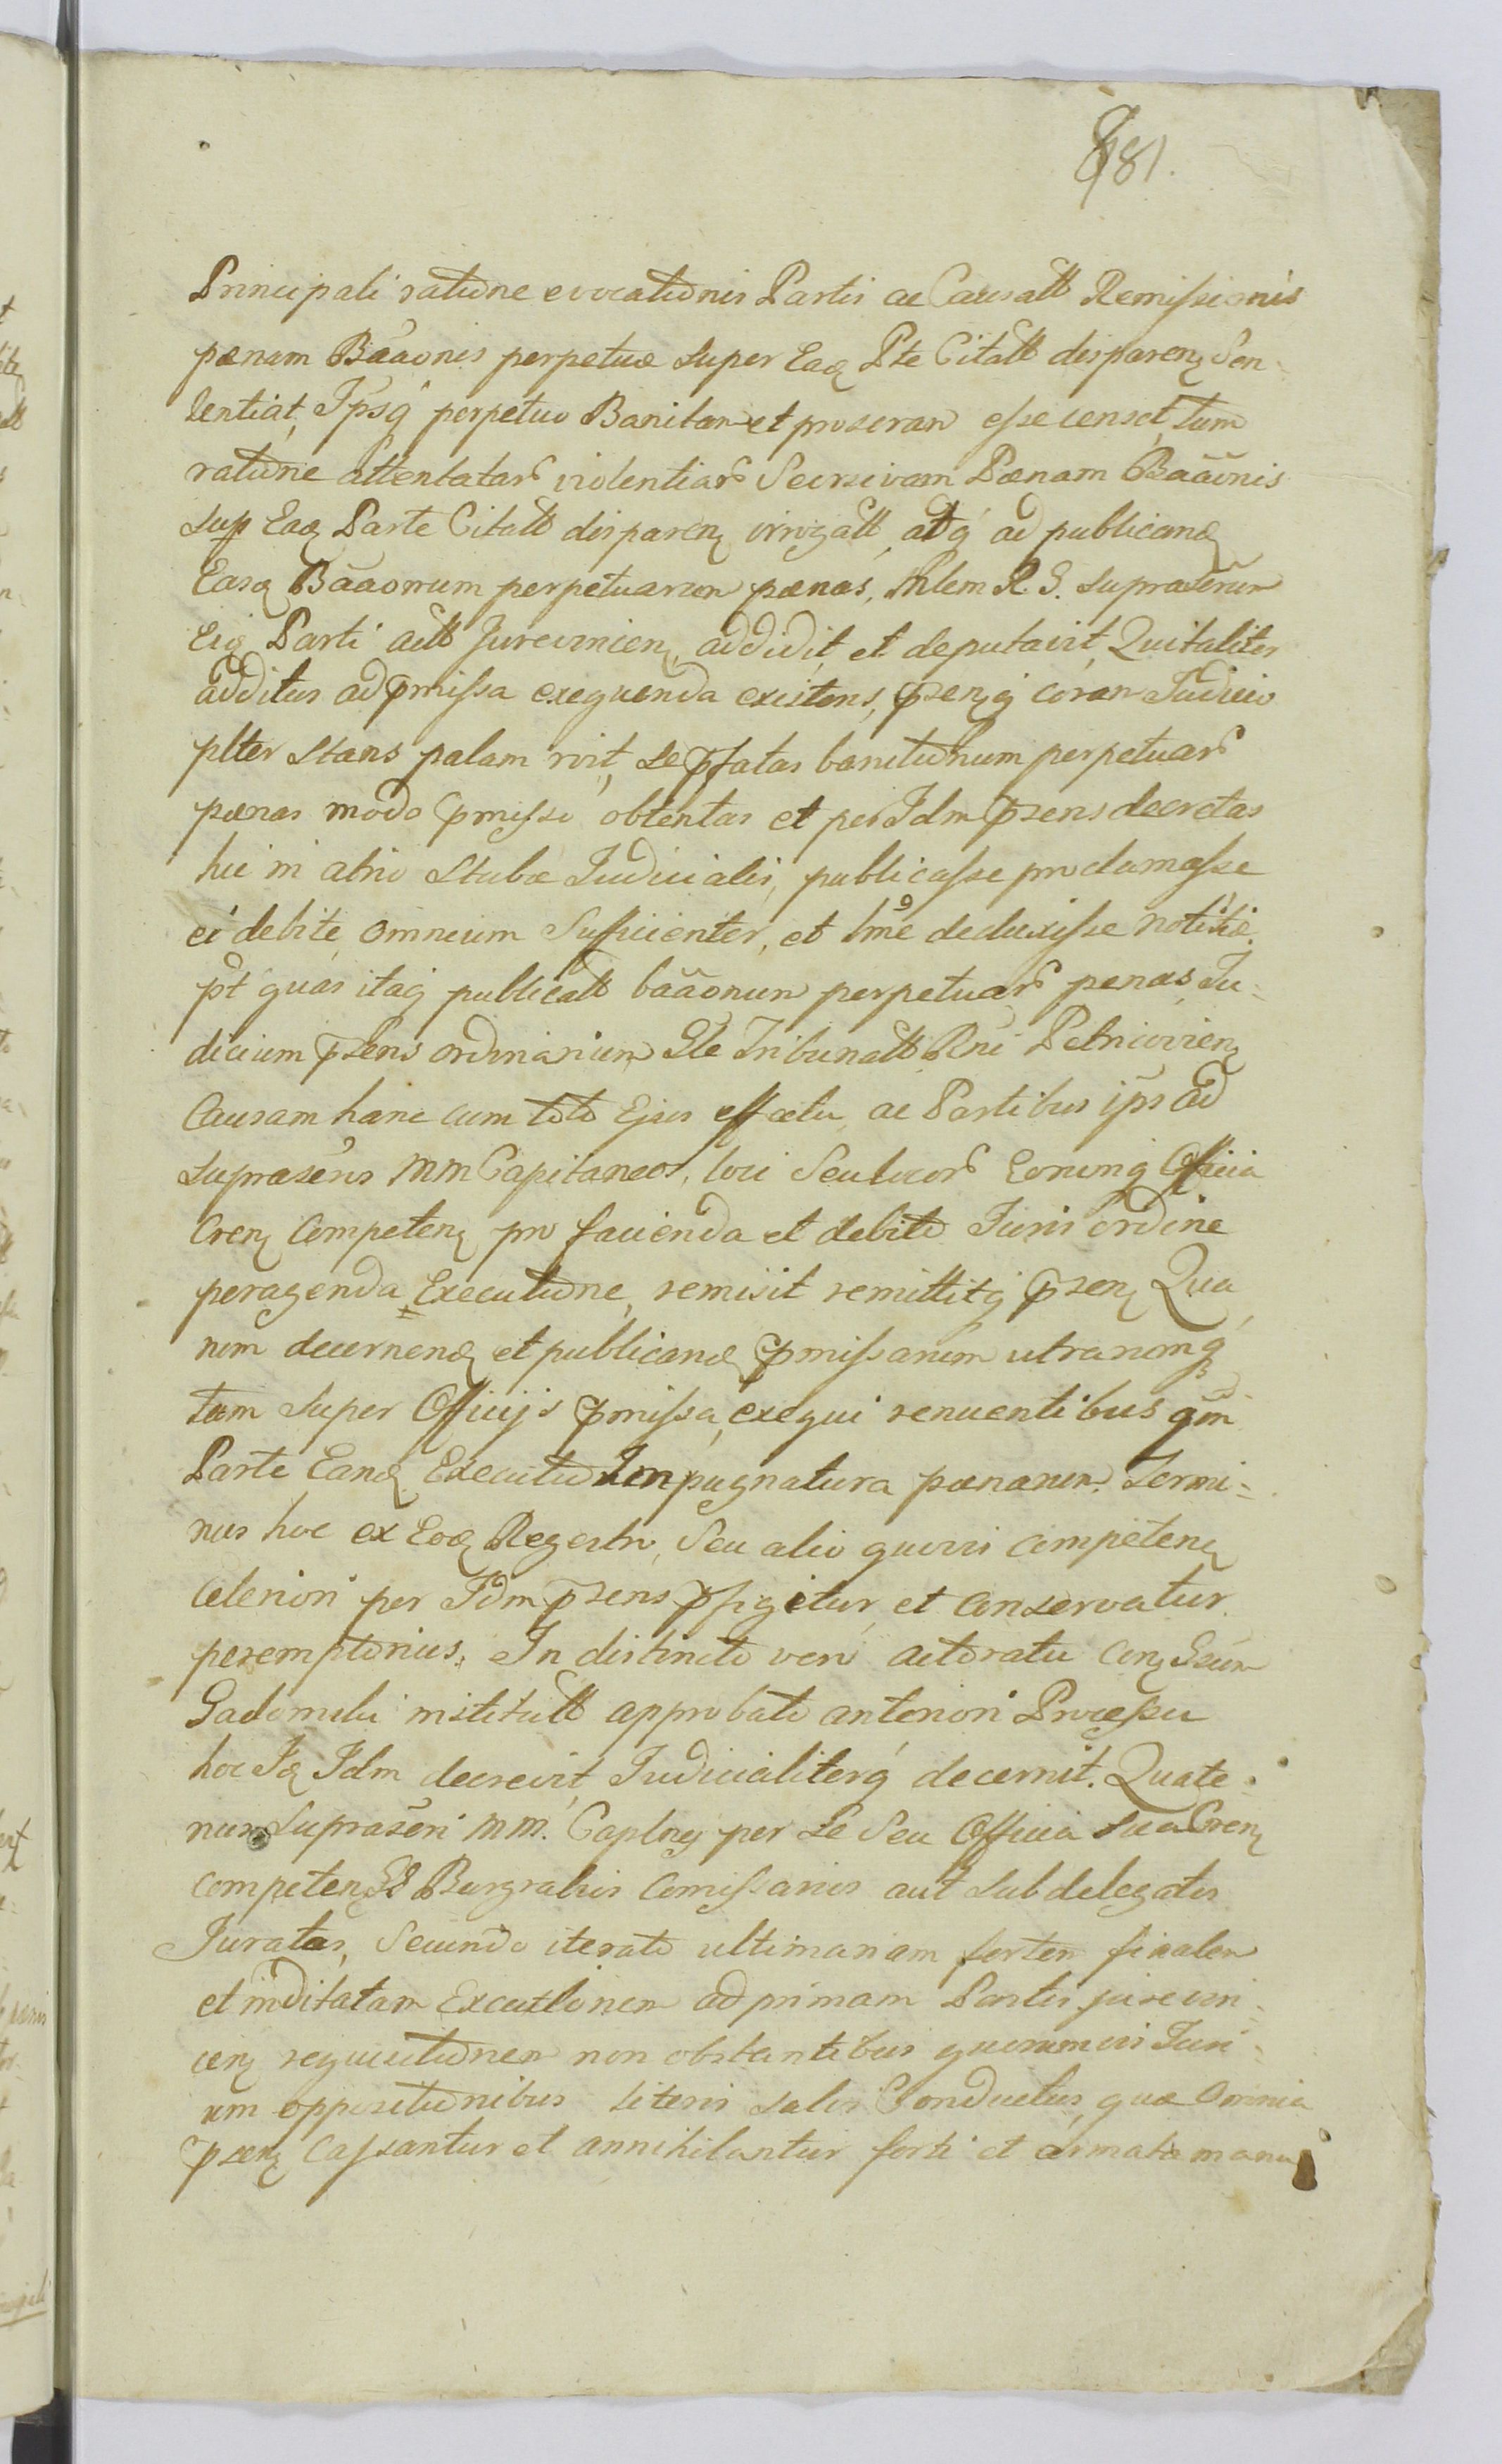 881.
Principali ratione evocationis Partis ac Causatt Remissionis
pœnam Bãaonis perpetuæ super Eaq Pte Citatt disparenz Sen-
tentiat, Ipsq perpetuo Banitam et proscran esse censet, tum
ratione attentatar violentiar Secsivam Pœnam Bããonis
sup Eaq Parte Citatt disparenz irrogatt, atq ad publicand
Easq Bãaonum perpetuarum pœnas, Mlem R. G. suprascrum
Eiq Parti actt Jurevincenz, addidit et deputavit, Qui taliter
additus ad pmissa exequenda existens, pzenzq coram Judicio
plter stans palam rvit, se pfatas banitionum perpetuar
pœnas modo pmisso obtentas et per Idm pzens decretas
hic in atrio Stubæ Judicialis, publicasse proclamasse
ei debite omnium sufficienter, et lme deduxisse notitiæ.
pt quas itaq publicatt bããonum perpetuar penas, Ju-
dicium pzens ordinarium Gle Tribunatt Rni Petricovienz
Causam hanc cum toto Ejus effectu ac Partibus ips ad
suprascros MM Capitaneos, loci Seu locor Eorumq Officia
Crenz Competenz pro facienda et debito Juris ordine
peragenda Executione, remisit remittitq pzenz Qua
rum decernend et publicand pmissarum utrarumq
tam super Officijs pmissa, exequi renuentibus qm
Parte Eand Executio Impugnatura pœnarum. Termi-
nus hoc ex Eoq Regestro, Seu alio quovis competenz
celeriori per Idm pzens pfigitur et Conservatur
peremptorius. In distincto vero actoratu Genz Gsum
Gadomski institutt approbato anteriori Processu
hoc Iq Idm decrevit, Judicialiterq decernit. Quate-
nus suprascri MM. Captnej per se Seu Officia sua Crenz
competenz Burgrabios Comissarios aut Subdelegatos
Juratos, Secundo iterato ultimariam fortem finalem
et meditatam Executionem ad primam Partis jurevin-
cenz requisitionem non obstantibus quorumvis Juri-
um oppositionibus literis salvi Conductus, quæ Omnia
pzenz Cassantur et annihilantur forti et armata manu